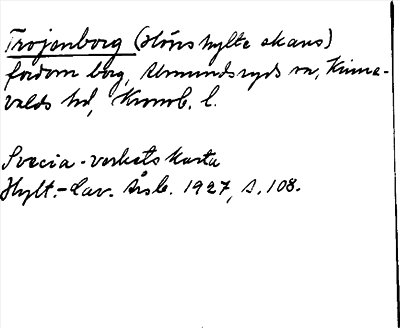 Trojenborg (Hönshylte skans)
fordom borg, Urmundsryds sn, Kinne-
valds hd, Kronob. l.
Svecia-verkets karta
Hylt.-Cav. Årsb. 1927, s. 108.